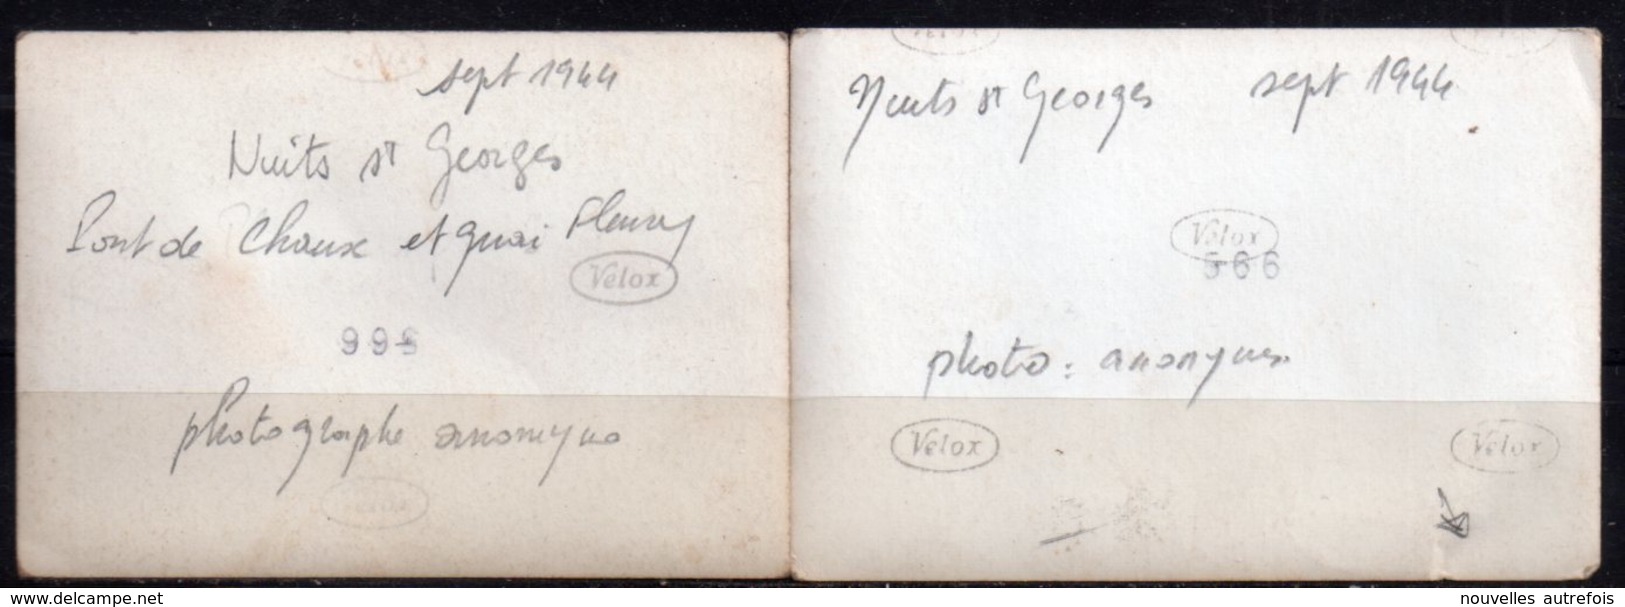 sept 1944
Nuits st Georges
Pont de Chaux et quai Fleury
Velox
photographe anonyme
Velox
Velox
Nuits st Georges sept 1944
Velox
566
photo : anonyme
Velox
Velox
www.delcampe.net
nouvelles autrefois